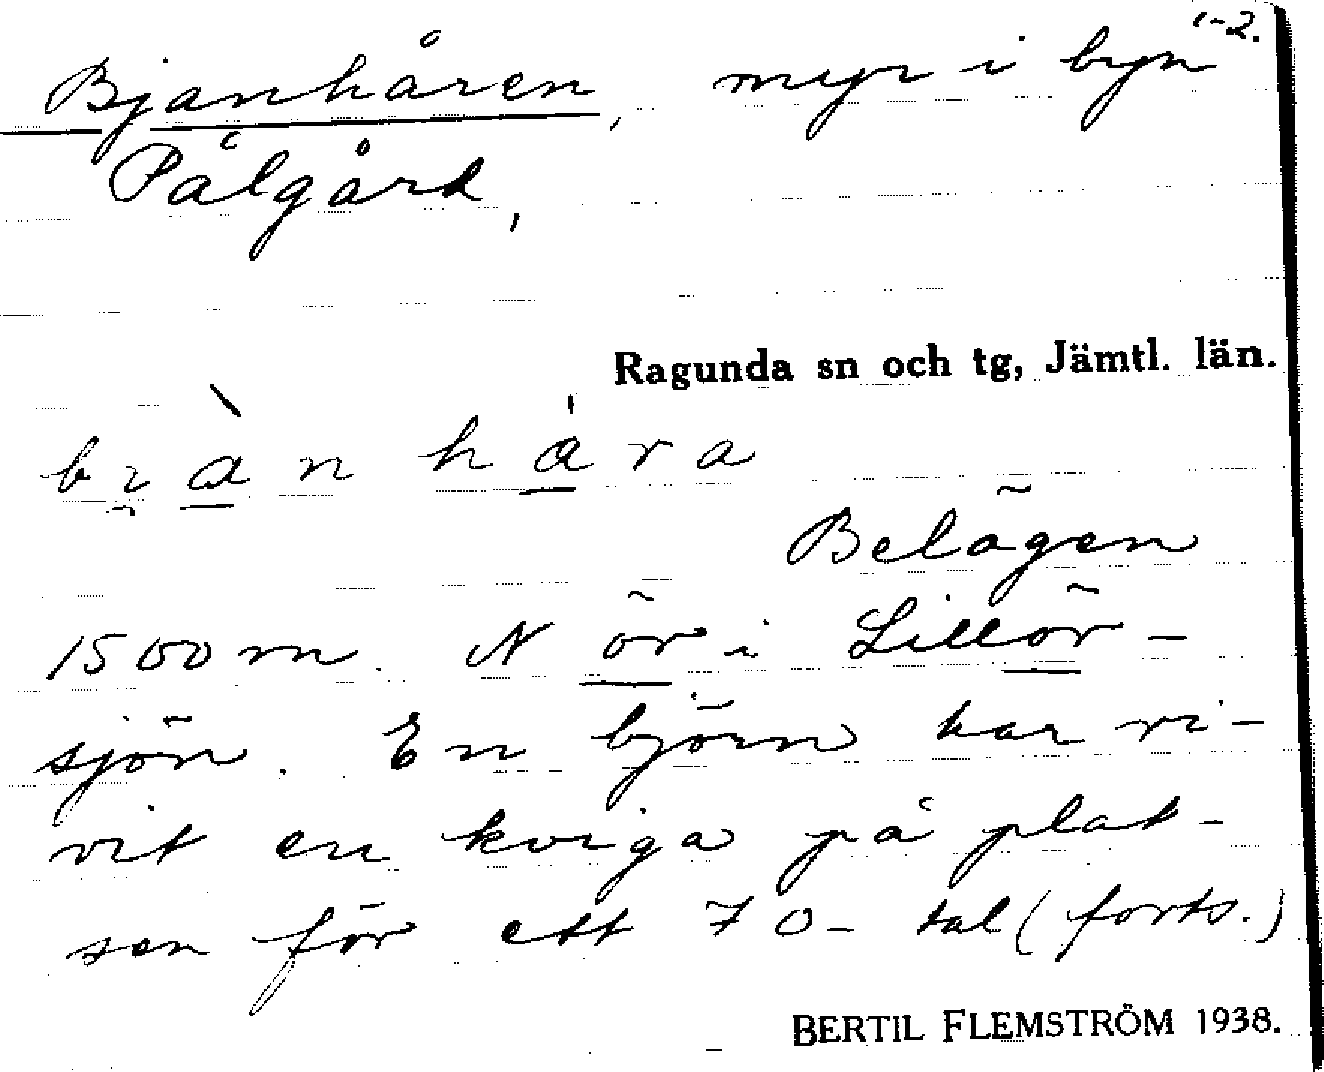 1-2.
Bjanhåren, myr i byn
Pålgård,
Ragunda sn och tg, Jämtl. län.
Belägen
1500 m. N ör i Lillör-
sjön. En björn har ri-
vit en kviga på plat-
sen för ett 70-tal (forts.)
BERTIL FLEMSTRÖM 1938.